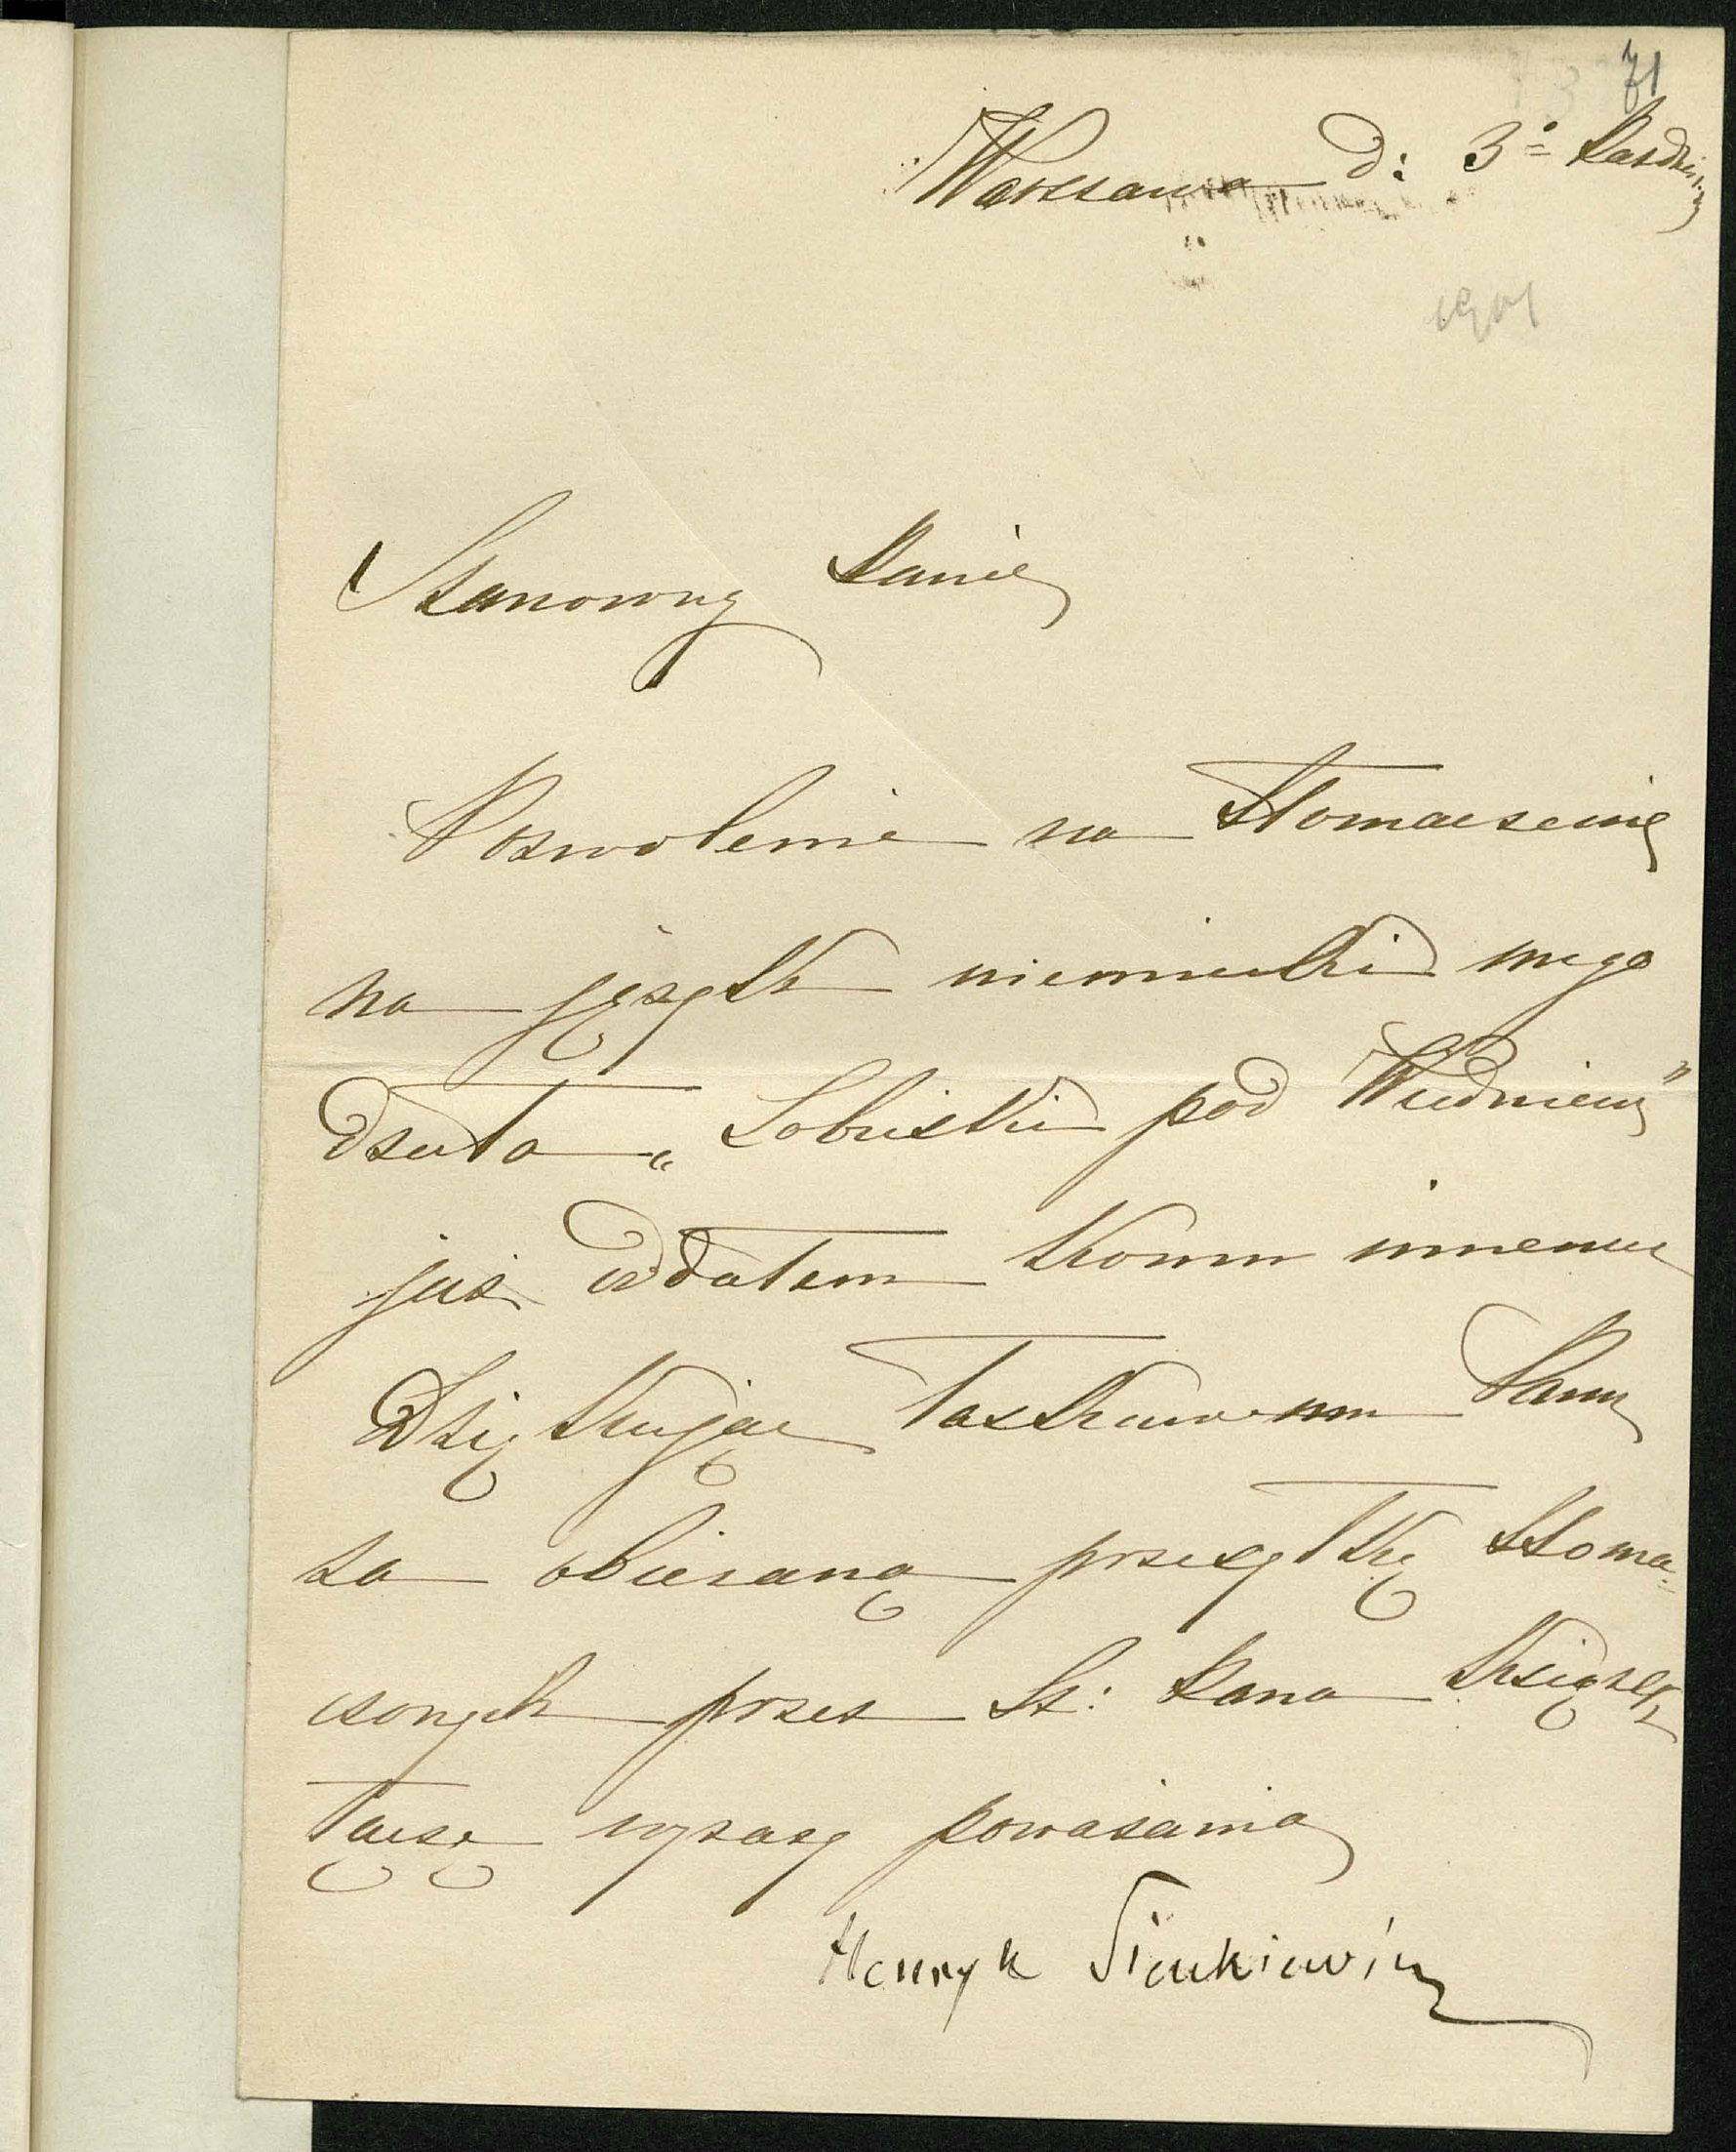 71
Warszawa d: 3º Paździer
1901
Szanowny Panie
Pozwolenie na tłomaczenie
na język niemiecki mego
dzieła „Sobieski pod Wiedniem"
już oddałem komu innemu
Dziękując łaskawemu Panu
za obiecaną przesyłkę tłoma-
czonych przez Sz: Pana książek,
łączę wyrazy poważania
Henryk Sienkiewicz